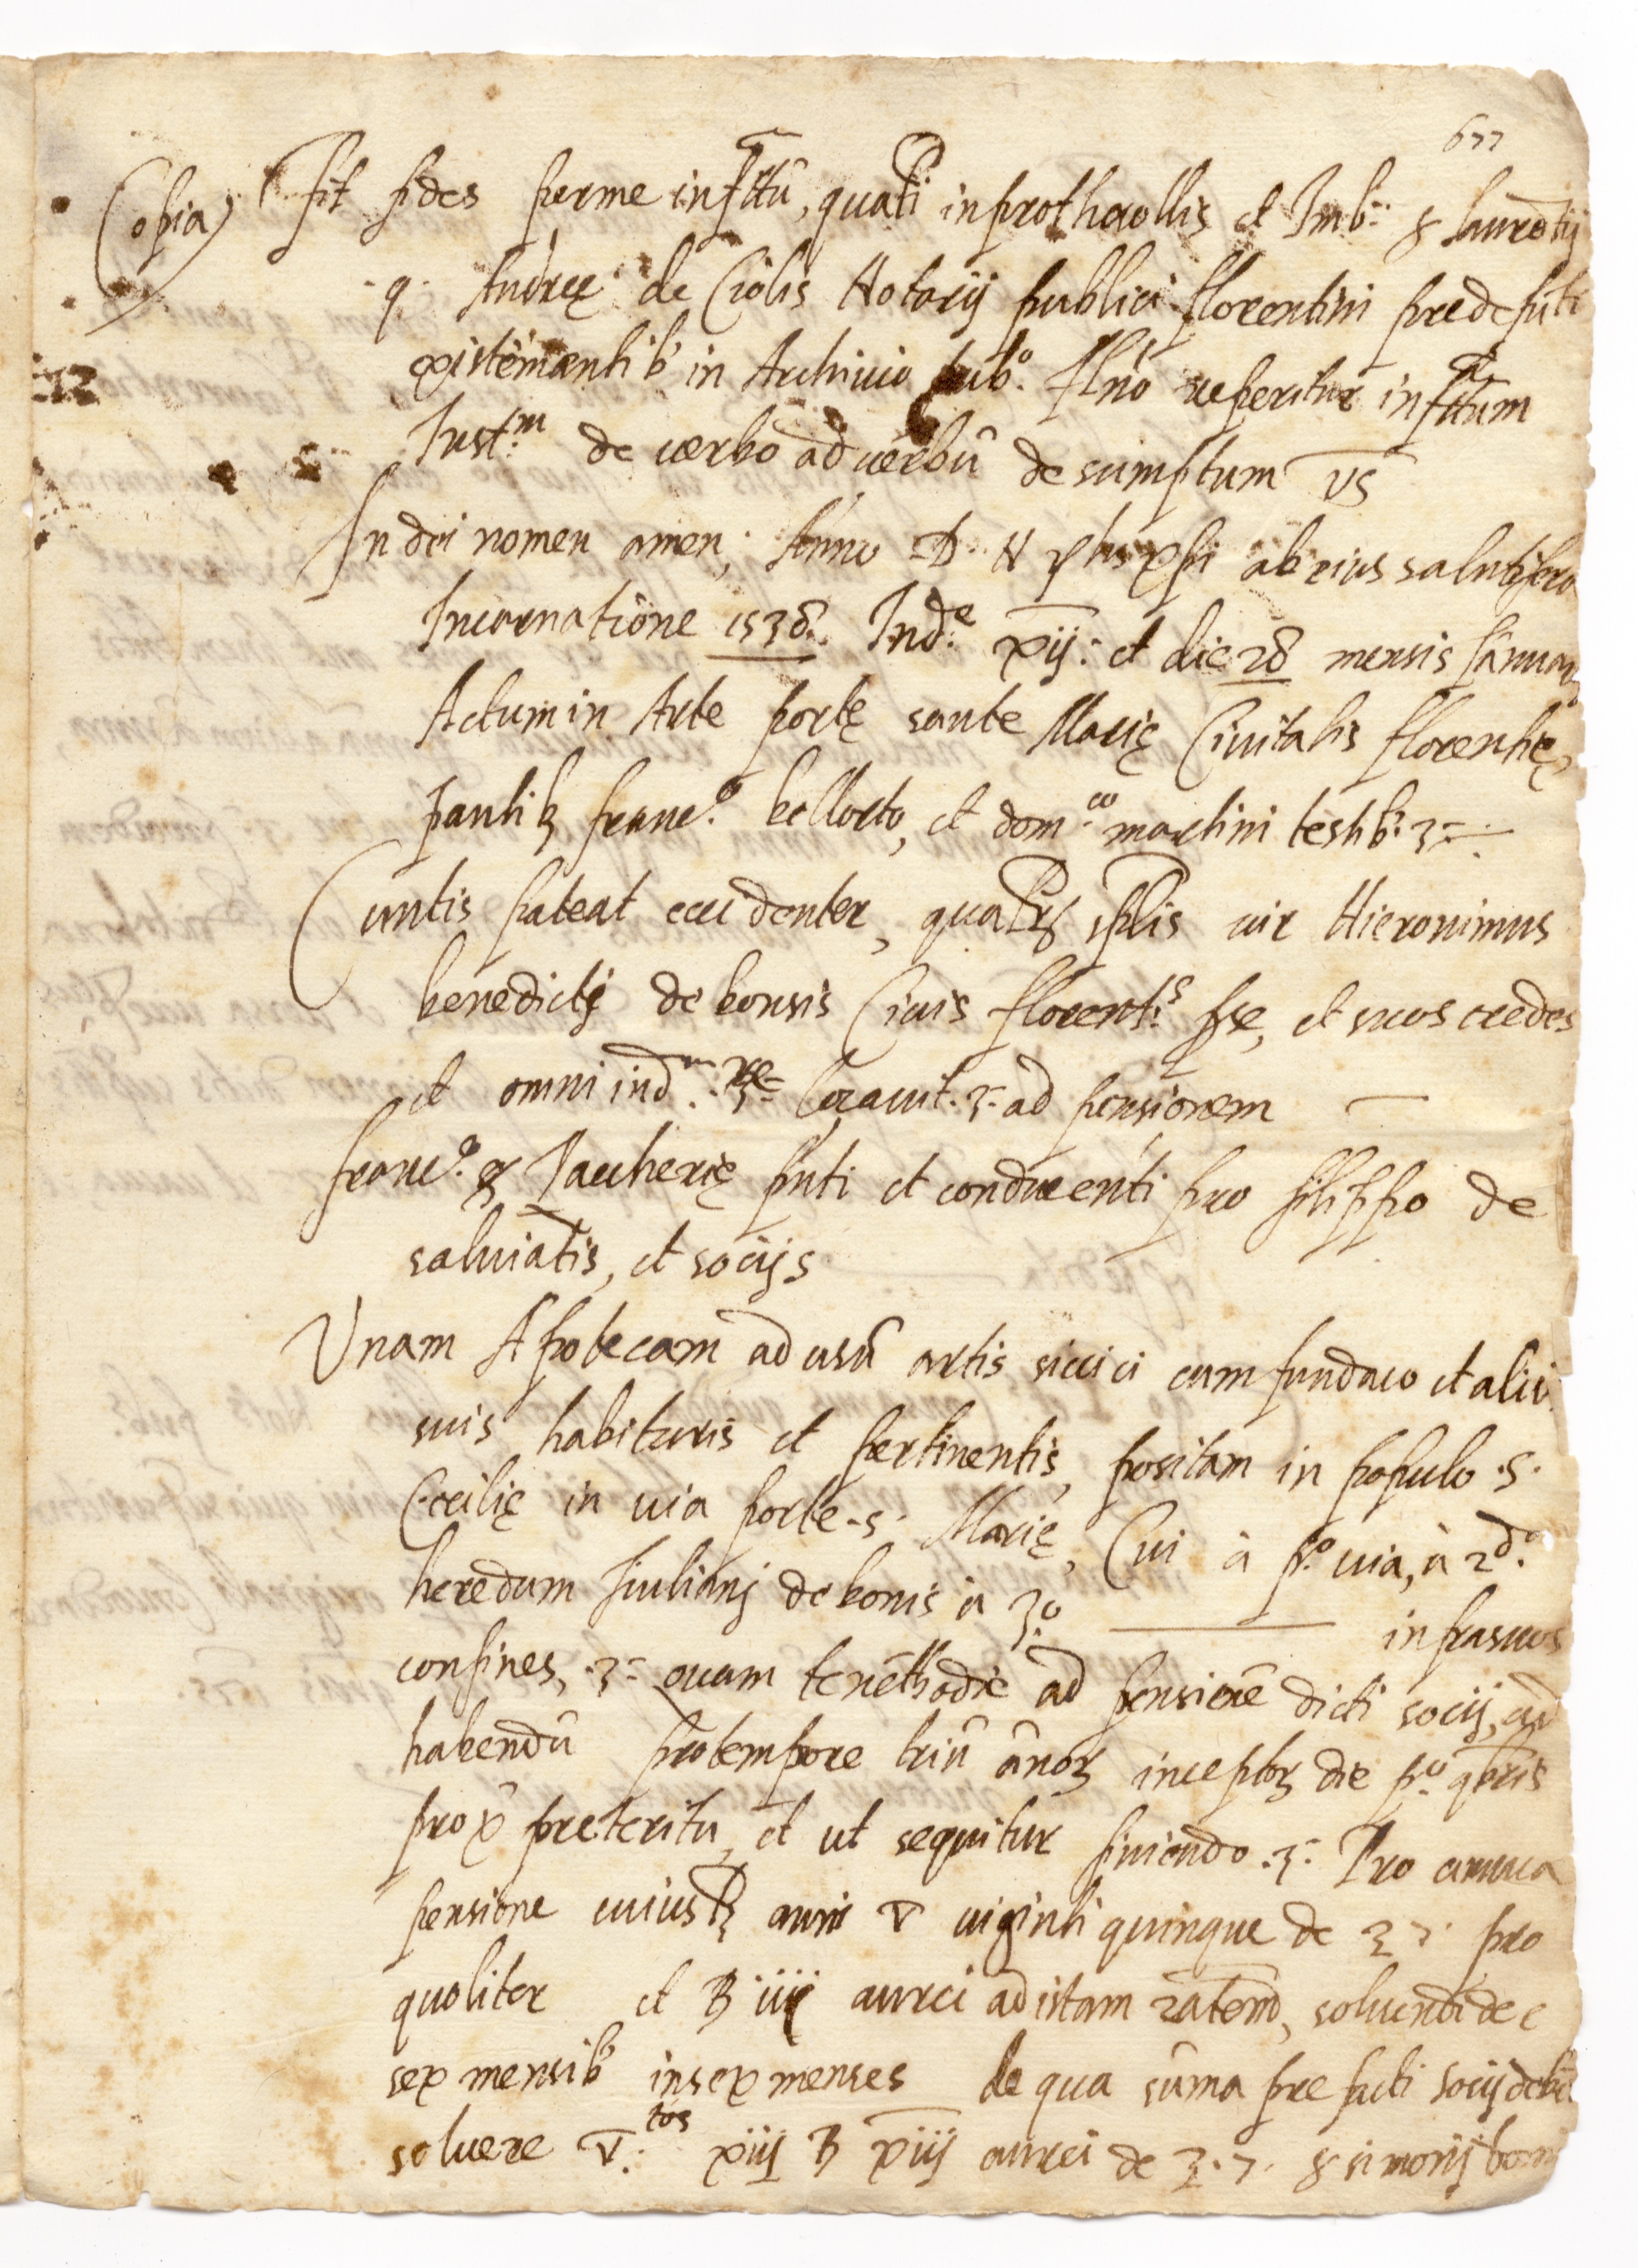 677
Copia) Fit fides per me infrũ, qualr̃ in prothocollis et Imb.: S. Laurẽtij
q. Andreę de Ciolis Notarij publici florentini pred
existẽntib' in Archivio pub.o Flño reperitur infrũm
Inst.m de verbo ad verbũ desumptum vs
In dei nomen amen; Anno D. N yhs xpi ab eius salutifera
Incarnatione 1538. Ind.e xij: et die 28 mensis Januar
Actum in Arte portę sante Marię Civitatis florentię,
pñtib franc.o bellocto, et dom.co martini testib: 3=
Cuntis pateat evidenter, qualr̃ vir Hieronimus
benedicti de bonsis Civis florent.s pse, et suos eredes
et omni ind.m 3= Locavit .3. ad pensionem
franc.o Zaccherię pñti et conducẽnti pro filippo de
salviatis, et socijs
Unam Apotecam ad usũ artis sirici cum fundaco et alii
suis habituris et pertinentis, positam in populo .S.
Cecilię in via porte .s. Marię, Cui à p.o via, à 2d.o
heredum Juliani de bonsis à 3.o infrasuos
confines, .3= quam tenẽt hodie ad pensionẽ dicti socij, ad
habendũ pro tempore triũ ãnor inceptor die p.o 9bris
prox preteritu, et ut sequitur finiendo .3. Pro annua
pensione auri ▽ viginti quinque de 3 7. pro
quolibet et B iiij aurei ad istam solvendi de
sex mensib' in sex menses de qua sũma prefacti socij debẽ
solvere ▽.tos xiij B xiij aurei de 3.7.